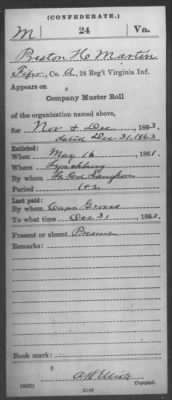 (CONFEDERATE.)
M 24 Va.
Preston H Martin
Co. A, 24 Reg't Virginia Inf.
Appears on
Company Muster Roll
of the organization named above,
for Nov & Dec, 1863.
dated Dec 31, 1863
Enlisted:
When May 16, 1861.
Where Lynchburg
By whom Langhorn
Period
Last paid:
By whom Capt
To what time Oct 31, 1863.
Present or absent Present
Remarks:
Book mark:
(642)
Copyist.